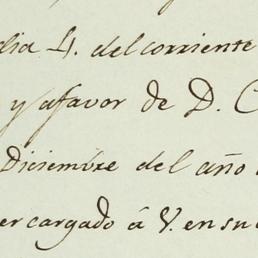 dia 4. del corriente
y afavor de D. C
Diciembre del año
er cargado á V. en su